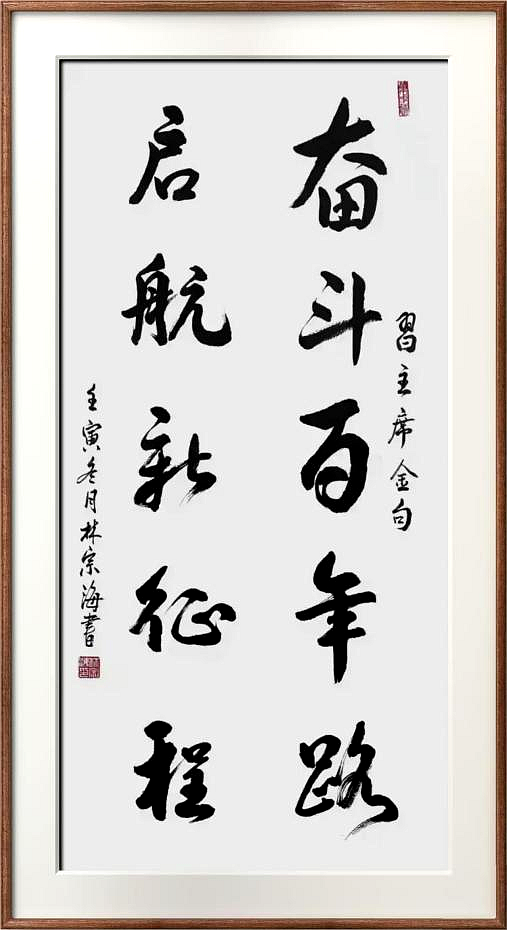 習主席金句
奋斗百年路
启航新征程
壬寅冬月林宗海書